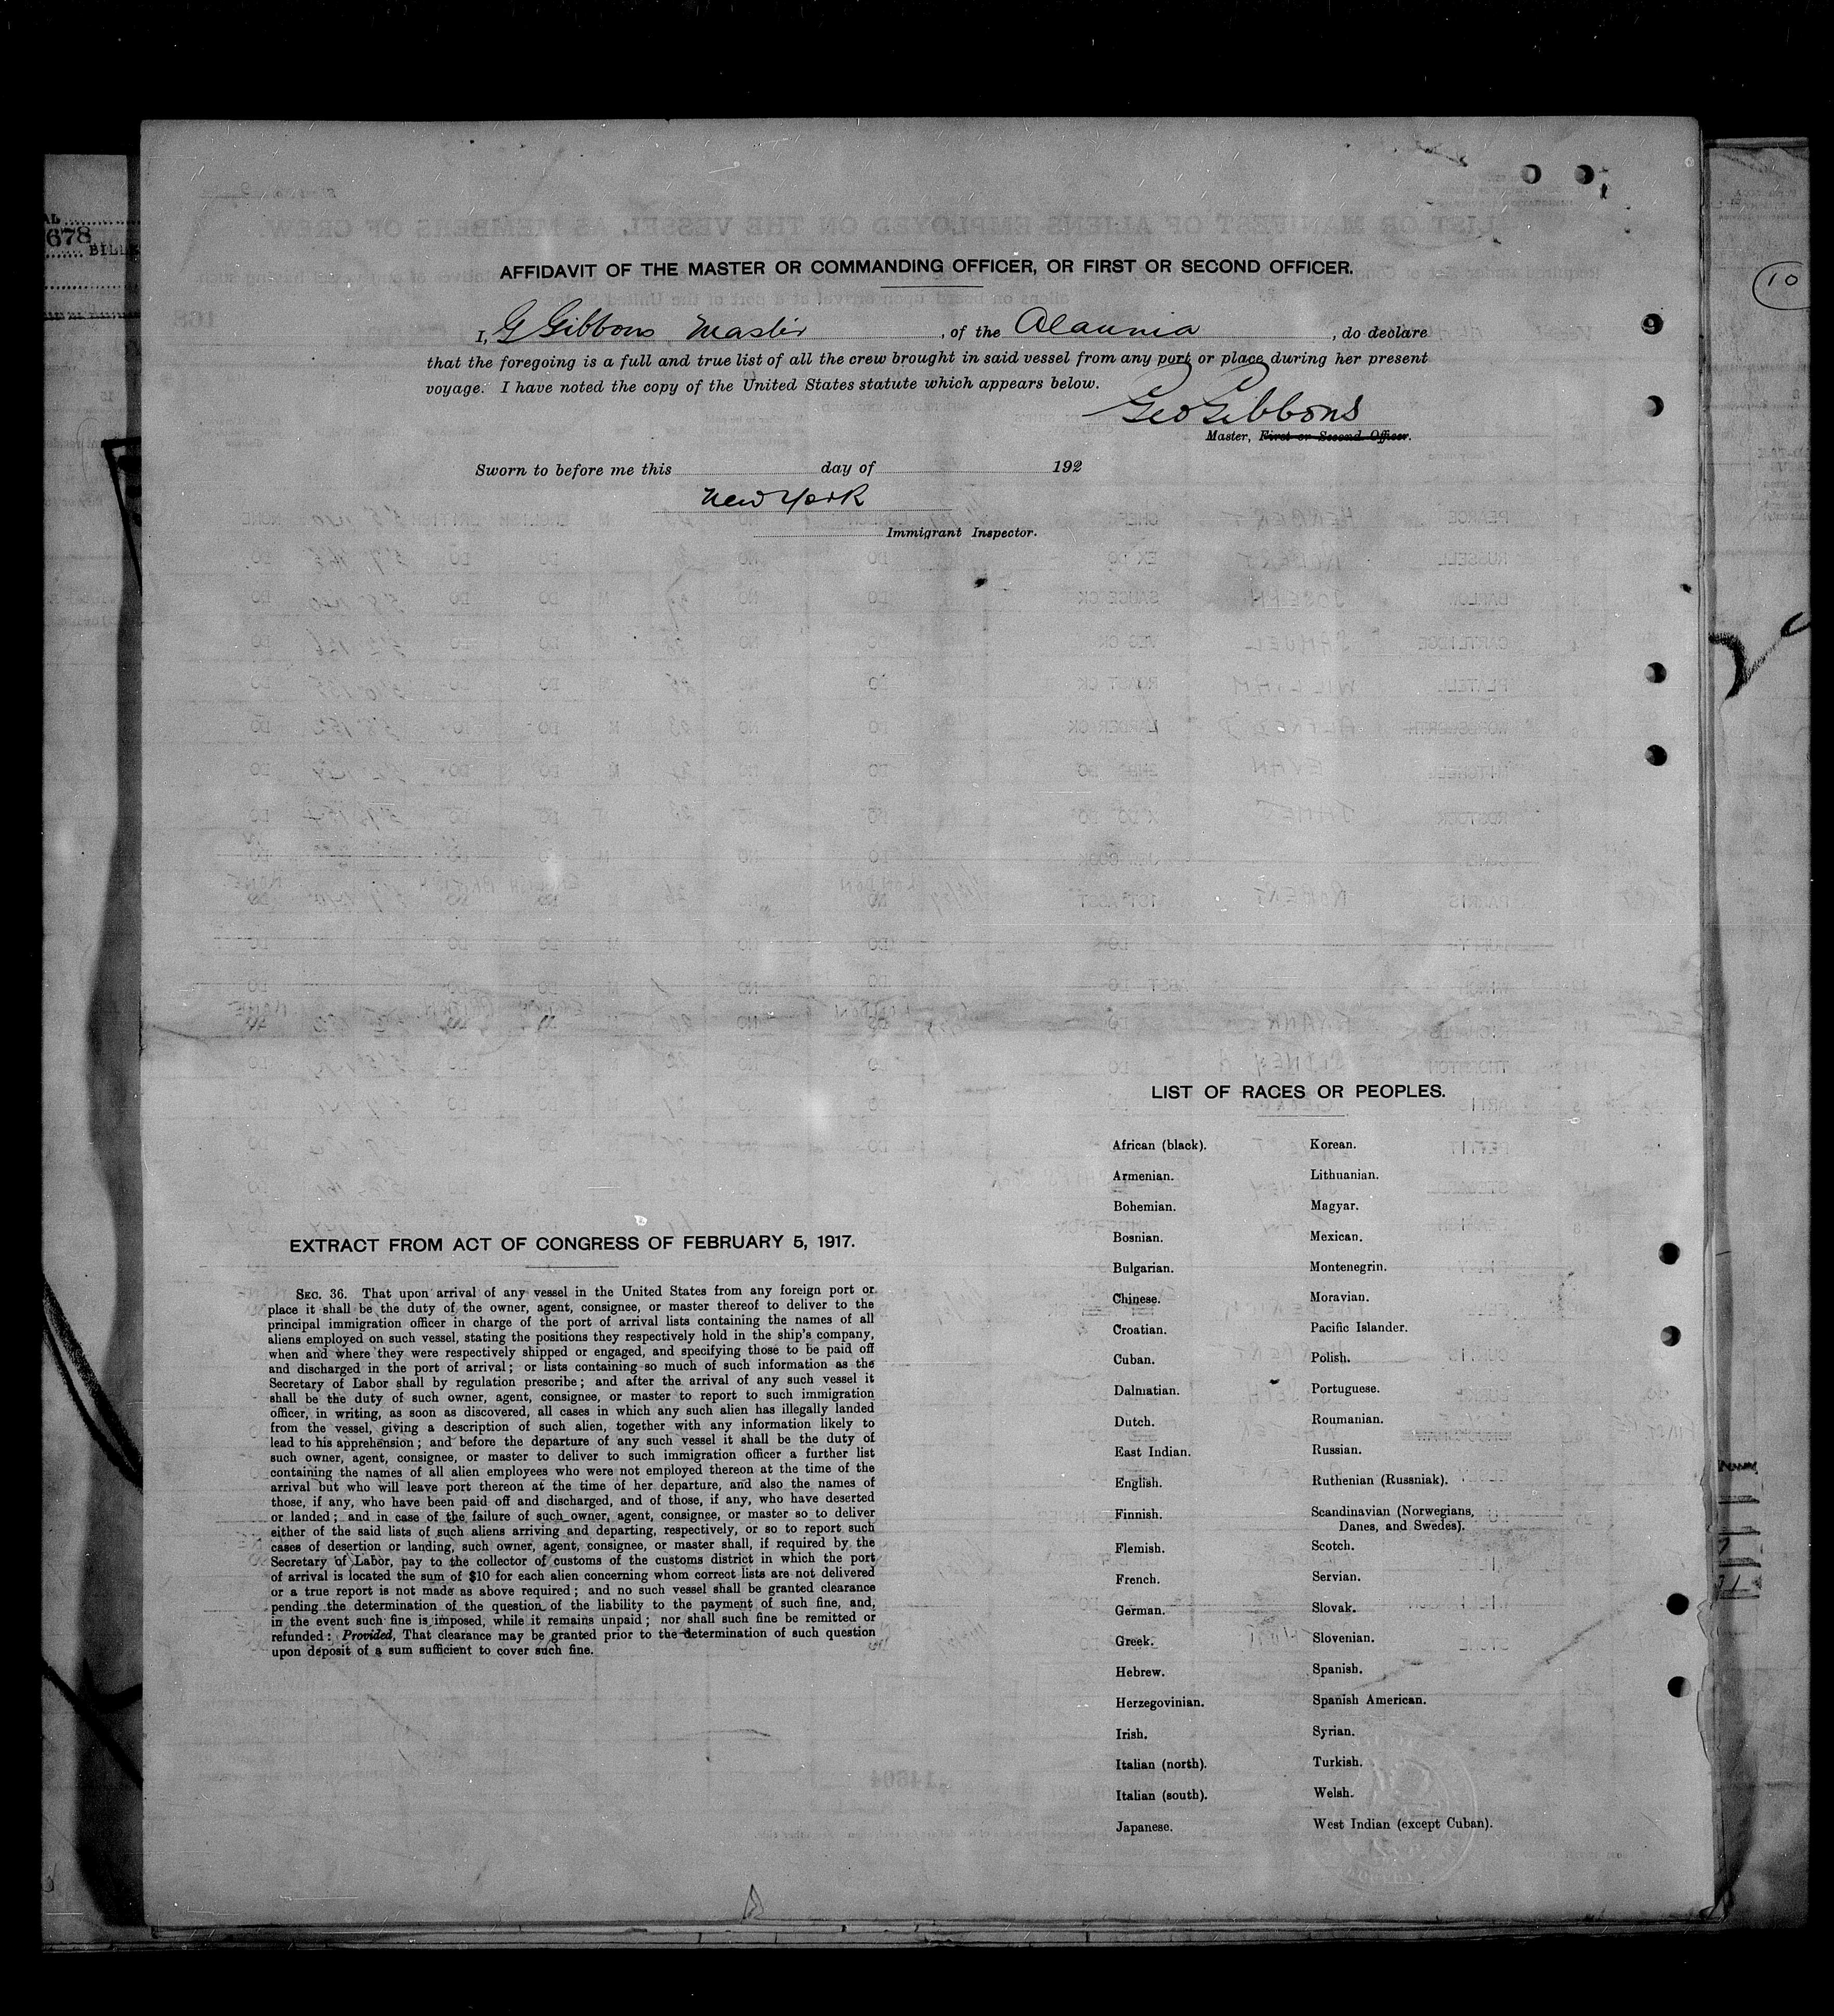 678
BILL
10
9
AFFIDAVIT OF THE MASTER OR COMMANDING OFFICER, OR FIRST OR SECOND OFFICER.
I, G Gibbons Master, of the Alaunia, do declare
that the foregoing is a full and true list of all the crew brought in said vessel from any port or place during her present
voyage. I have noted the copy of the United States statute which appears below.
Geo Gibbons
Master, First or Second Officer.
Sworn to before me this day of 192
New York
Immigrant Inspector.
LIST OF RACES OR PEOPLES.
African (black). Korean.
Armenian. Lithuanian.
Bohemian. Magyar.
Bosnian. Mexican.
Bulgarian. Montenegrin.
Chinese. Moravian.
Croatian. Pacific Islander.
Cuban. Polish.
Dalmatian. Portuguese.
Dutch. Roumanian.
East Indian. Russian.
English. Ruthenian (Russniak).
Finnish. Scandinavian (Norwegians,
Danes, and Swedes).
Flemish. Scotch.
French. Servian.
German. Slovak.
Greek. Slovenian.
Hebrew. Spanish.
Herzegovinian. Spanish American.
Irish. Syrian.
Italian (north). Turkish.
Italian (south). Welsh.
Japanese. West Indian (except Cuban).
EXTRACT FROM ACT OF CONGRESS OF FEBRUARY 5, 1917.
SEC. 36. That upon arrival of any vessel in the United States from any foreign port or
place it shall be the duty of the owner, agent, consignee, or master thereof to deliver to the
principal immigration officer in charge of the port of arrival lists containing the names of all
aliens employed on such vessel, stating the positions they respectively hold in the ship's company,
when and where they were respectively shipped or engaged, and specifying those to be paid off
and discharged in the port of arrival; or lists containing so much of such information as the
Secretary of Labor shall by regulation prescribe; and after the arrival of any such vessel it
shall be the duty of such owner, agent, consignee, or master to report to such immigration
officer, in writing, as soon as discovered, all cases in which any such alien has illegally landed
from the vessel, giving a description of such alien, together with any information likely to
lead to his apprehension; and before the departure of any such vessel it shall be the duty of
such owner, agent, consignee, or master to deliver to such immigration officer a further list
containing the names of all alien employees who were not employed thereon at the time of the
arrival but who will leave port thereon at the time of her departure, and also the names of
those, if any, who have been paid off and discharged, and of those, if any, who have deserted
or landed; and in case of the failure of such owner, agent, consignee, or master so to deliver
either of the said lists of such aliens arriving and departing, respectively, or so to report such
cases of desertion or landing, such owner, agent, consignee, or master shall, if required by the
Secretary of Labor, pay to the collector of customs of the customs district in which the port
of arrival is located the sum of $10 for each alien concerning whom correct lists are not delivered
or a true report is not made as above required; and no such vessel shall be granted clearance
pending the determination of the question of the liability to the payment of such fine, and,
in the event such fine is imposed, while it remains unpaid; nor shall such fine be remitted or
refunded: Provided, That clearance may be granted prior to the determination of such question
upon deposit of a sum sufficient to cover such fine.